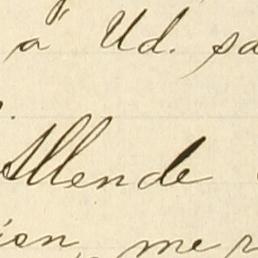 á Ud. sa
Allende
ion, me r